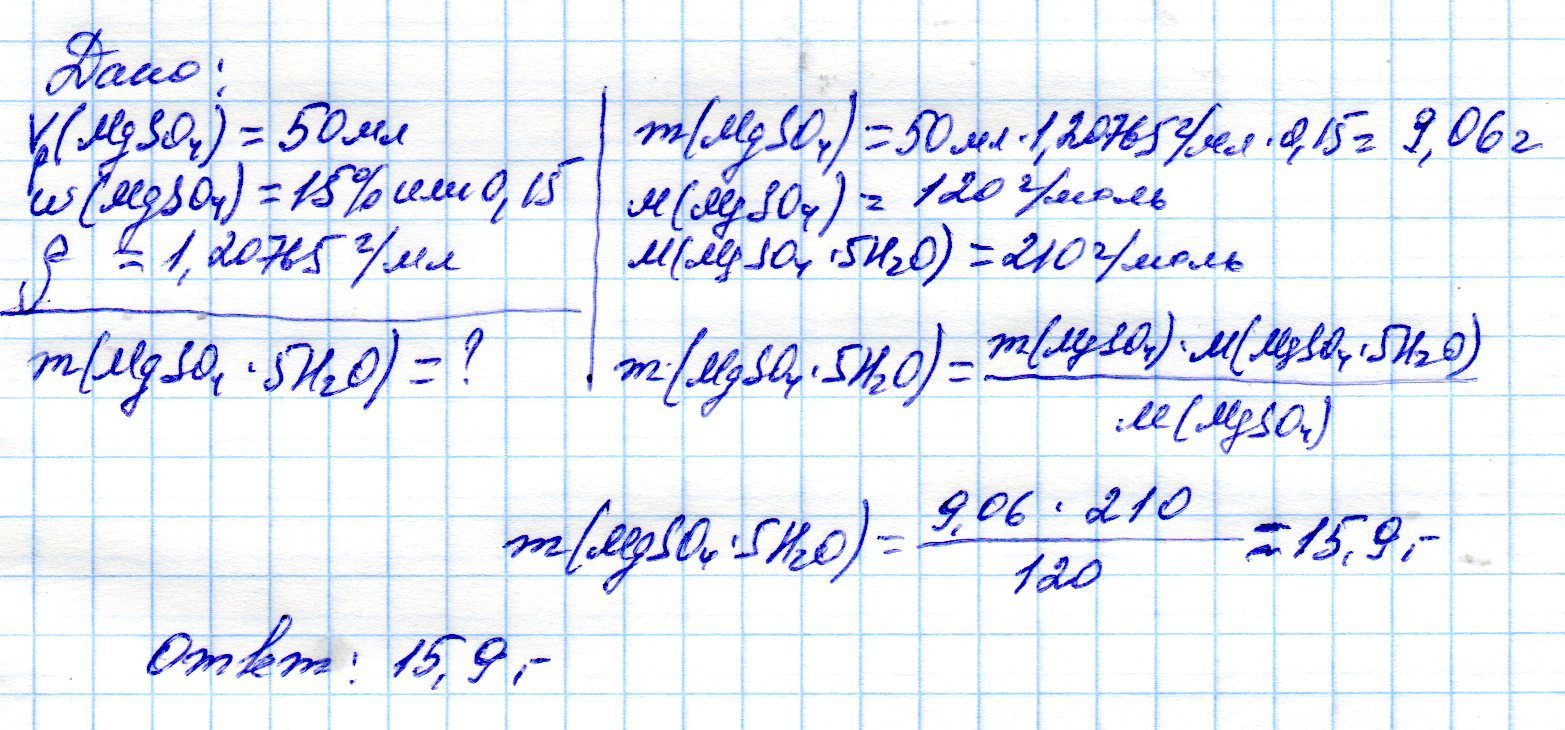 Дано:
V(MgSO₄) = 50 мл
ω(MgSO₄) = 15% или 0,15
ρ = 1,20765 г/мл
m(MgSO₄·5H₂O) = ?
m(MgSO₄) = 50 мл · 1,20765 г/мл · 0,15 = 9,06 г
M(MgSO₄) = 120 г/моль
M(MgSO₄·5H₂O) = 210 г/моль
m(MgSO₄·5H₂O) = m(MgSO₄)·M(MgSO₄·5H₂O)
M(MgSO₄)
m(MgSO₄·5H₂O) = 9,06 · 210 = 15,9 г
120
Ответ: 15,9 г